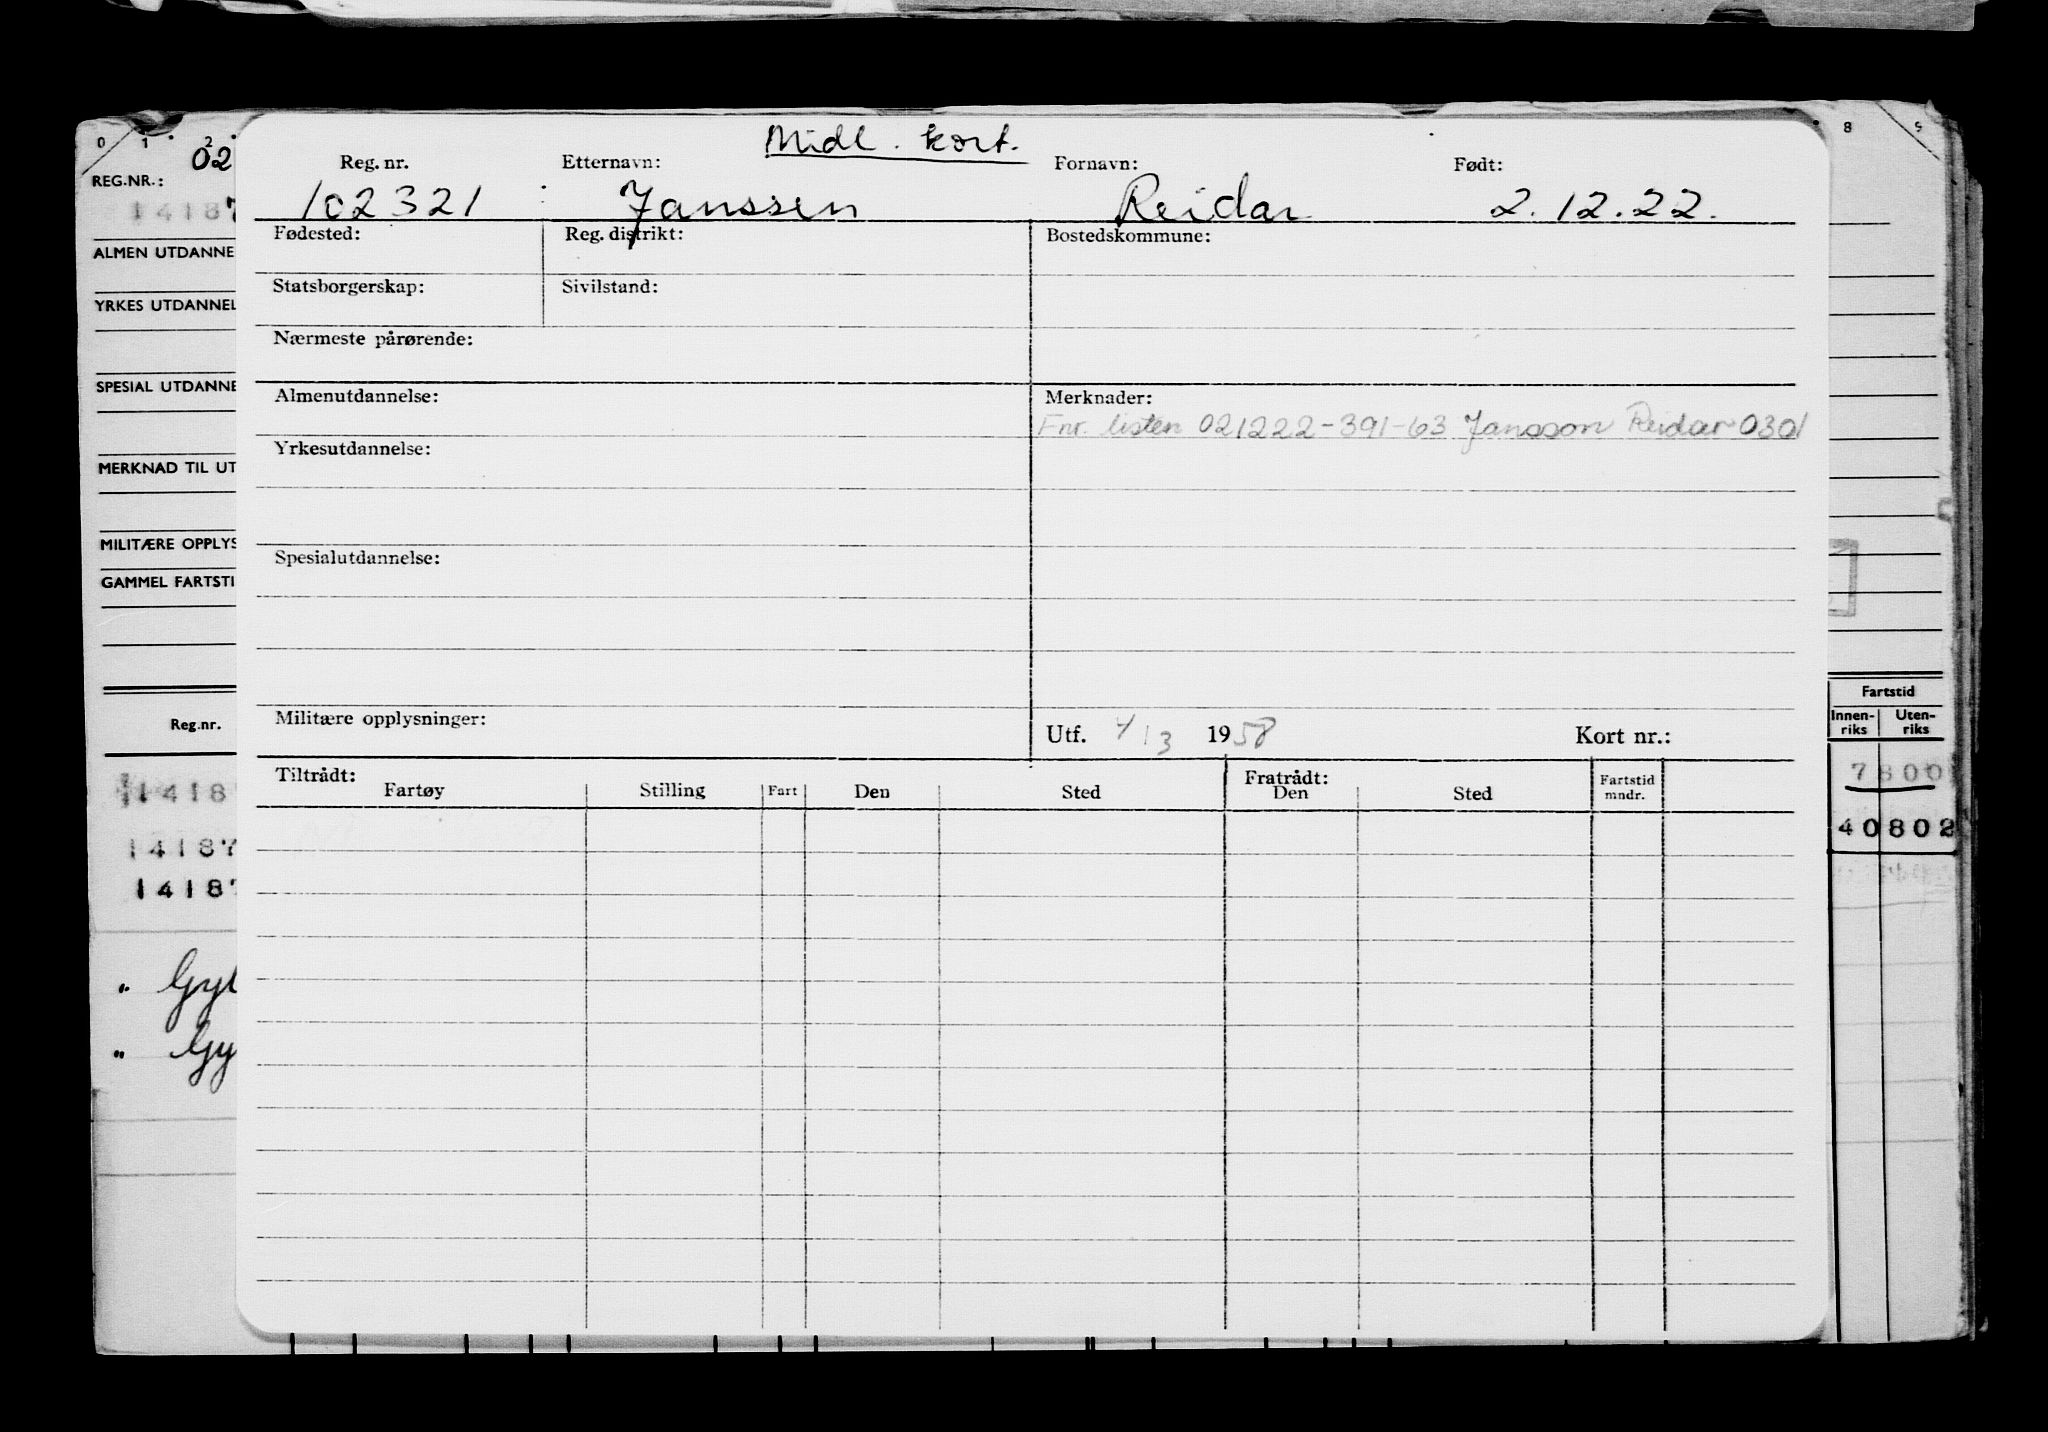 Midl. kort.
Reg. nr. Etternavn: Fornavn: Født:
102321 Janssen Reidar 2.12.22.
Fødested: Reg. distrikt: Bostedskommune:
Statsborgerskap: Sivilstand:
Nærmeste pårørende:
Almenutdannelse: Merknader:
Fnr. listen 021222-391-63 Jansson Reidar 0301
Yrkesutdannelse:
Spesialutdannelse:
Militære opplysninger: Utf. 4/3 1958 Kort nr.:
Tiltrådt: Fratrådt:
Fartøy Stilling Fart Den Sted Den Sted Fartstid mndr.
0 1 2 8 9
02
REG.NR.:
14187
ALMEN UTDANNE
YRKES UTDANNEL
SPESIAL UTDANNE
MERKNAD TIL UT
MILITÆRE OPPLYS
GAMMEL FARTSTI
Reg.nr.
14187
14187
14187
" Gyl
" Gy
Fartstid
Innen-riks Uten-riks
7800
40802